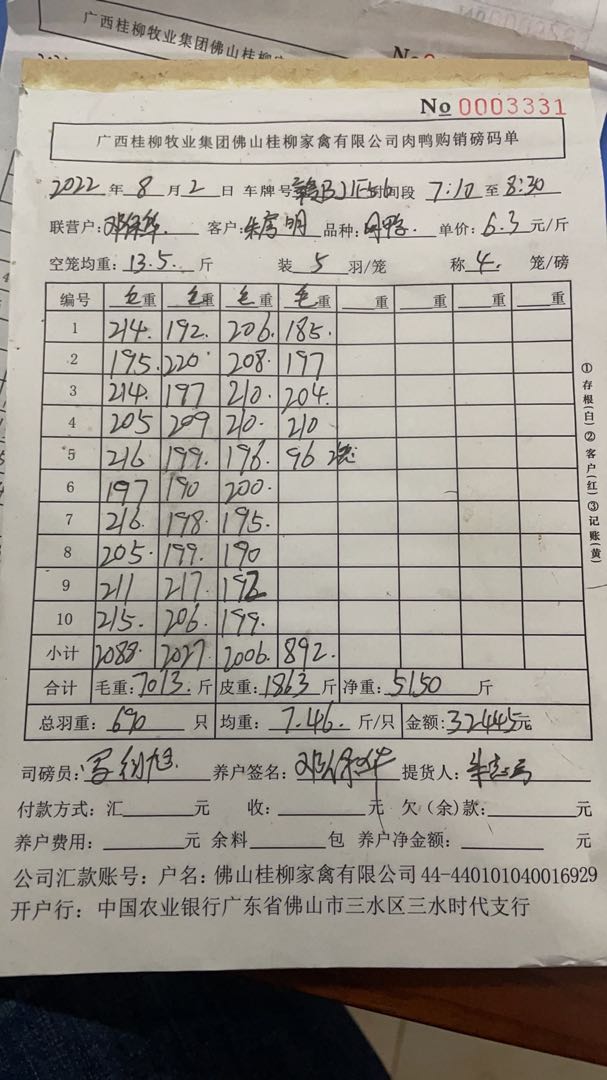 广西桂柳牧业集团佛山桂柳
No
No 0003331
广西桂柳牧业集团佛山桂柳家禽有限公司肉鸭购销磅码单
2022 年 8 月 2 日 车牌号 时间段 7:10 至 8:30
联营户: 邓保华 客户: 朱富明 品种: 肉鸭 单价: 6.3 元/斤
空笼均重: 13.5 斤 装 5 羽/笼 称 4 笼/磅
编号 毛重 毛重 毛重 毛重 重 重 重 重
1 214 192 206 185
2 195 220 208 197
3 214 197 210 204
4 205 209 210 210
5 216 199 196 96 2笼
6 197 190 200
7 216 198 195
8 205 199 190
9 211 217 192
10 215 206 199
小计 2088 2027 2006 892
合计 毛重: 7013 斤 皮重: 1863 斤 净重: 5150 斤
总羽重: 690 只 均重: 7.46 斤/只 金额: 32445元
司磅员: 养户签名: 邓保华 提货人:
付款方式: 汇 元 收: 元 欠(余)款: 元
养户费用: 元 余料 包 养户净金额: 元
公司汇款账号: 户名: 佛山桂柳家禽有限公司 44-440101040016929
开户行: 中国农业银行广东省佛山市三水区三水时代支行
①存根(白)②客户(红)③记账(黄)